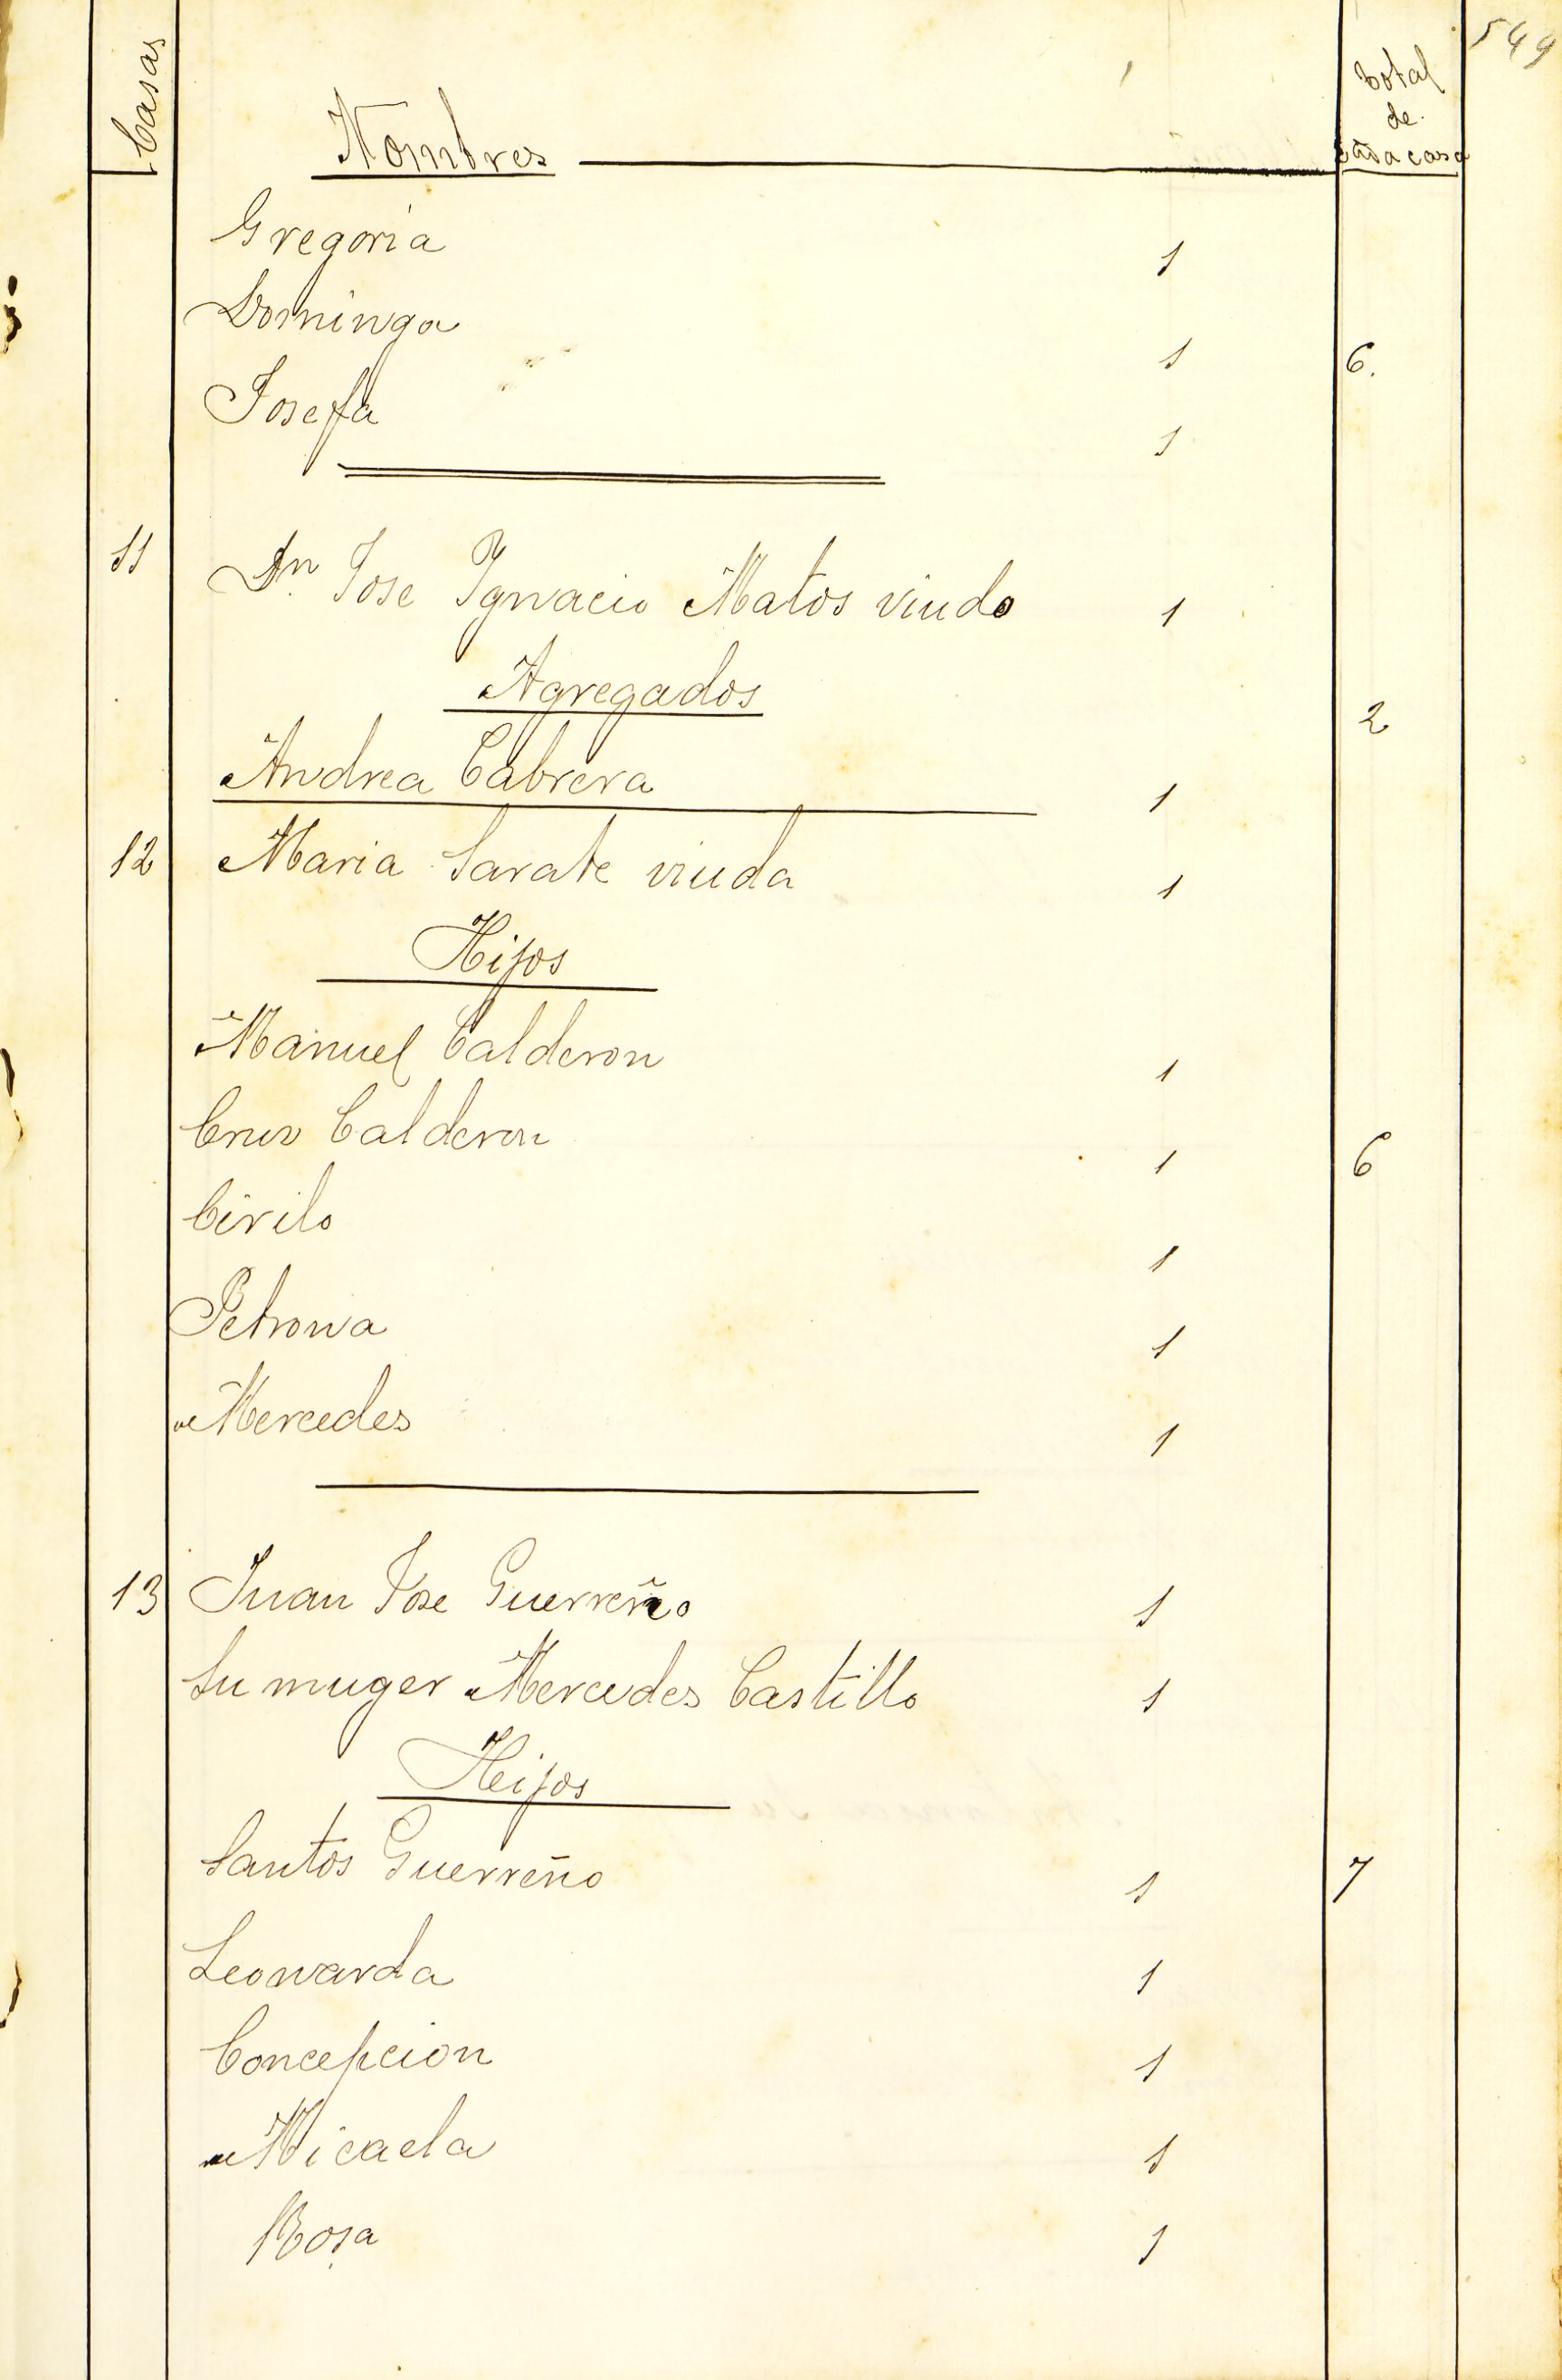 549
Casas
Nombres
total
de
cada casa
Gregoria 1
Dominga 1 6.
Josefa 1
11 Dn. Jose Ygnacio Matos viudo 1
Agregados
2
Andrea Cabrera 1
12 Maria Sarate viuda 1
Hijos
Manuel Calderon 1
Cruz Calderon 1 6
Cirilo 1
Petrona 1
Mercedes 1
13 Juan Jose Guerreño 1
Su muger Mercedes Castillo 1
Hijos
Santos Guerreño 1 7
Leonarda 1
Concepcion 1
Micaela 1
Rosa 1